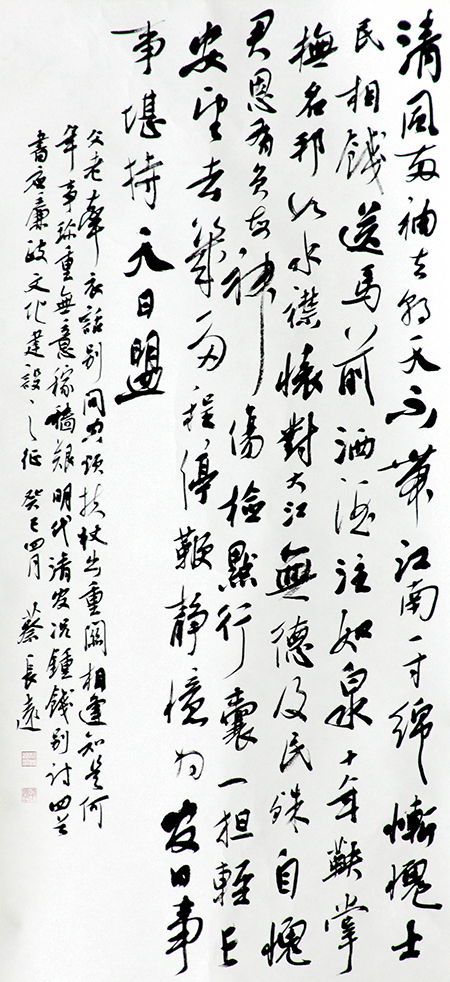 清風兩袖去朝天不帶江南一寸綿慚愧士
民相餞送馬前洒酒注如泉十年鞅掌
撫名邦似水襟懷對大江無德及民殊自愧
君恩有負神傷檢點行囊一担輕長
安望去幾多程停鞭靜憶為官日事
事堪持天日盟
父老牽衣話別扶杖出重關相逢知是何
年事珍重無意稼穡艱明代清官況鍾餞別詩四首
書應廉政文化建設之征 癸巳四月 蔡長遠